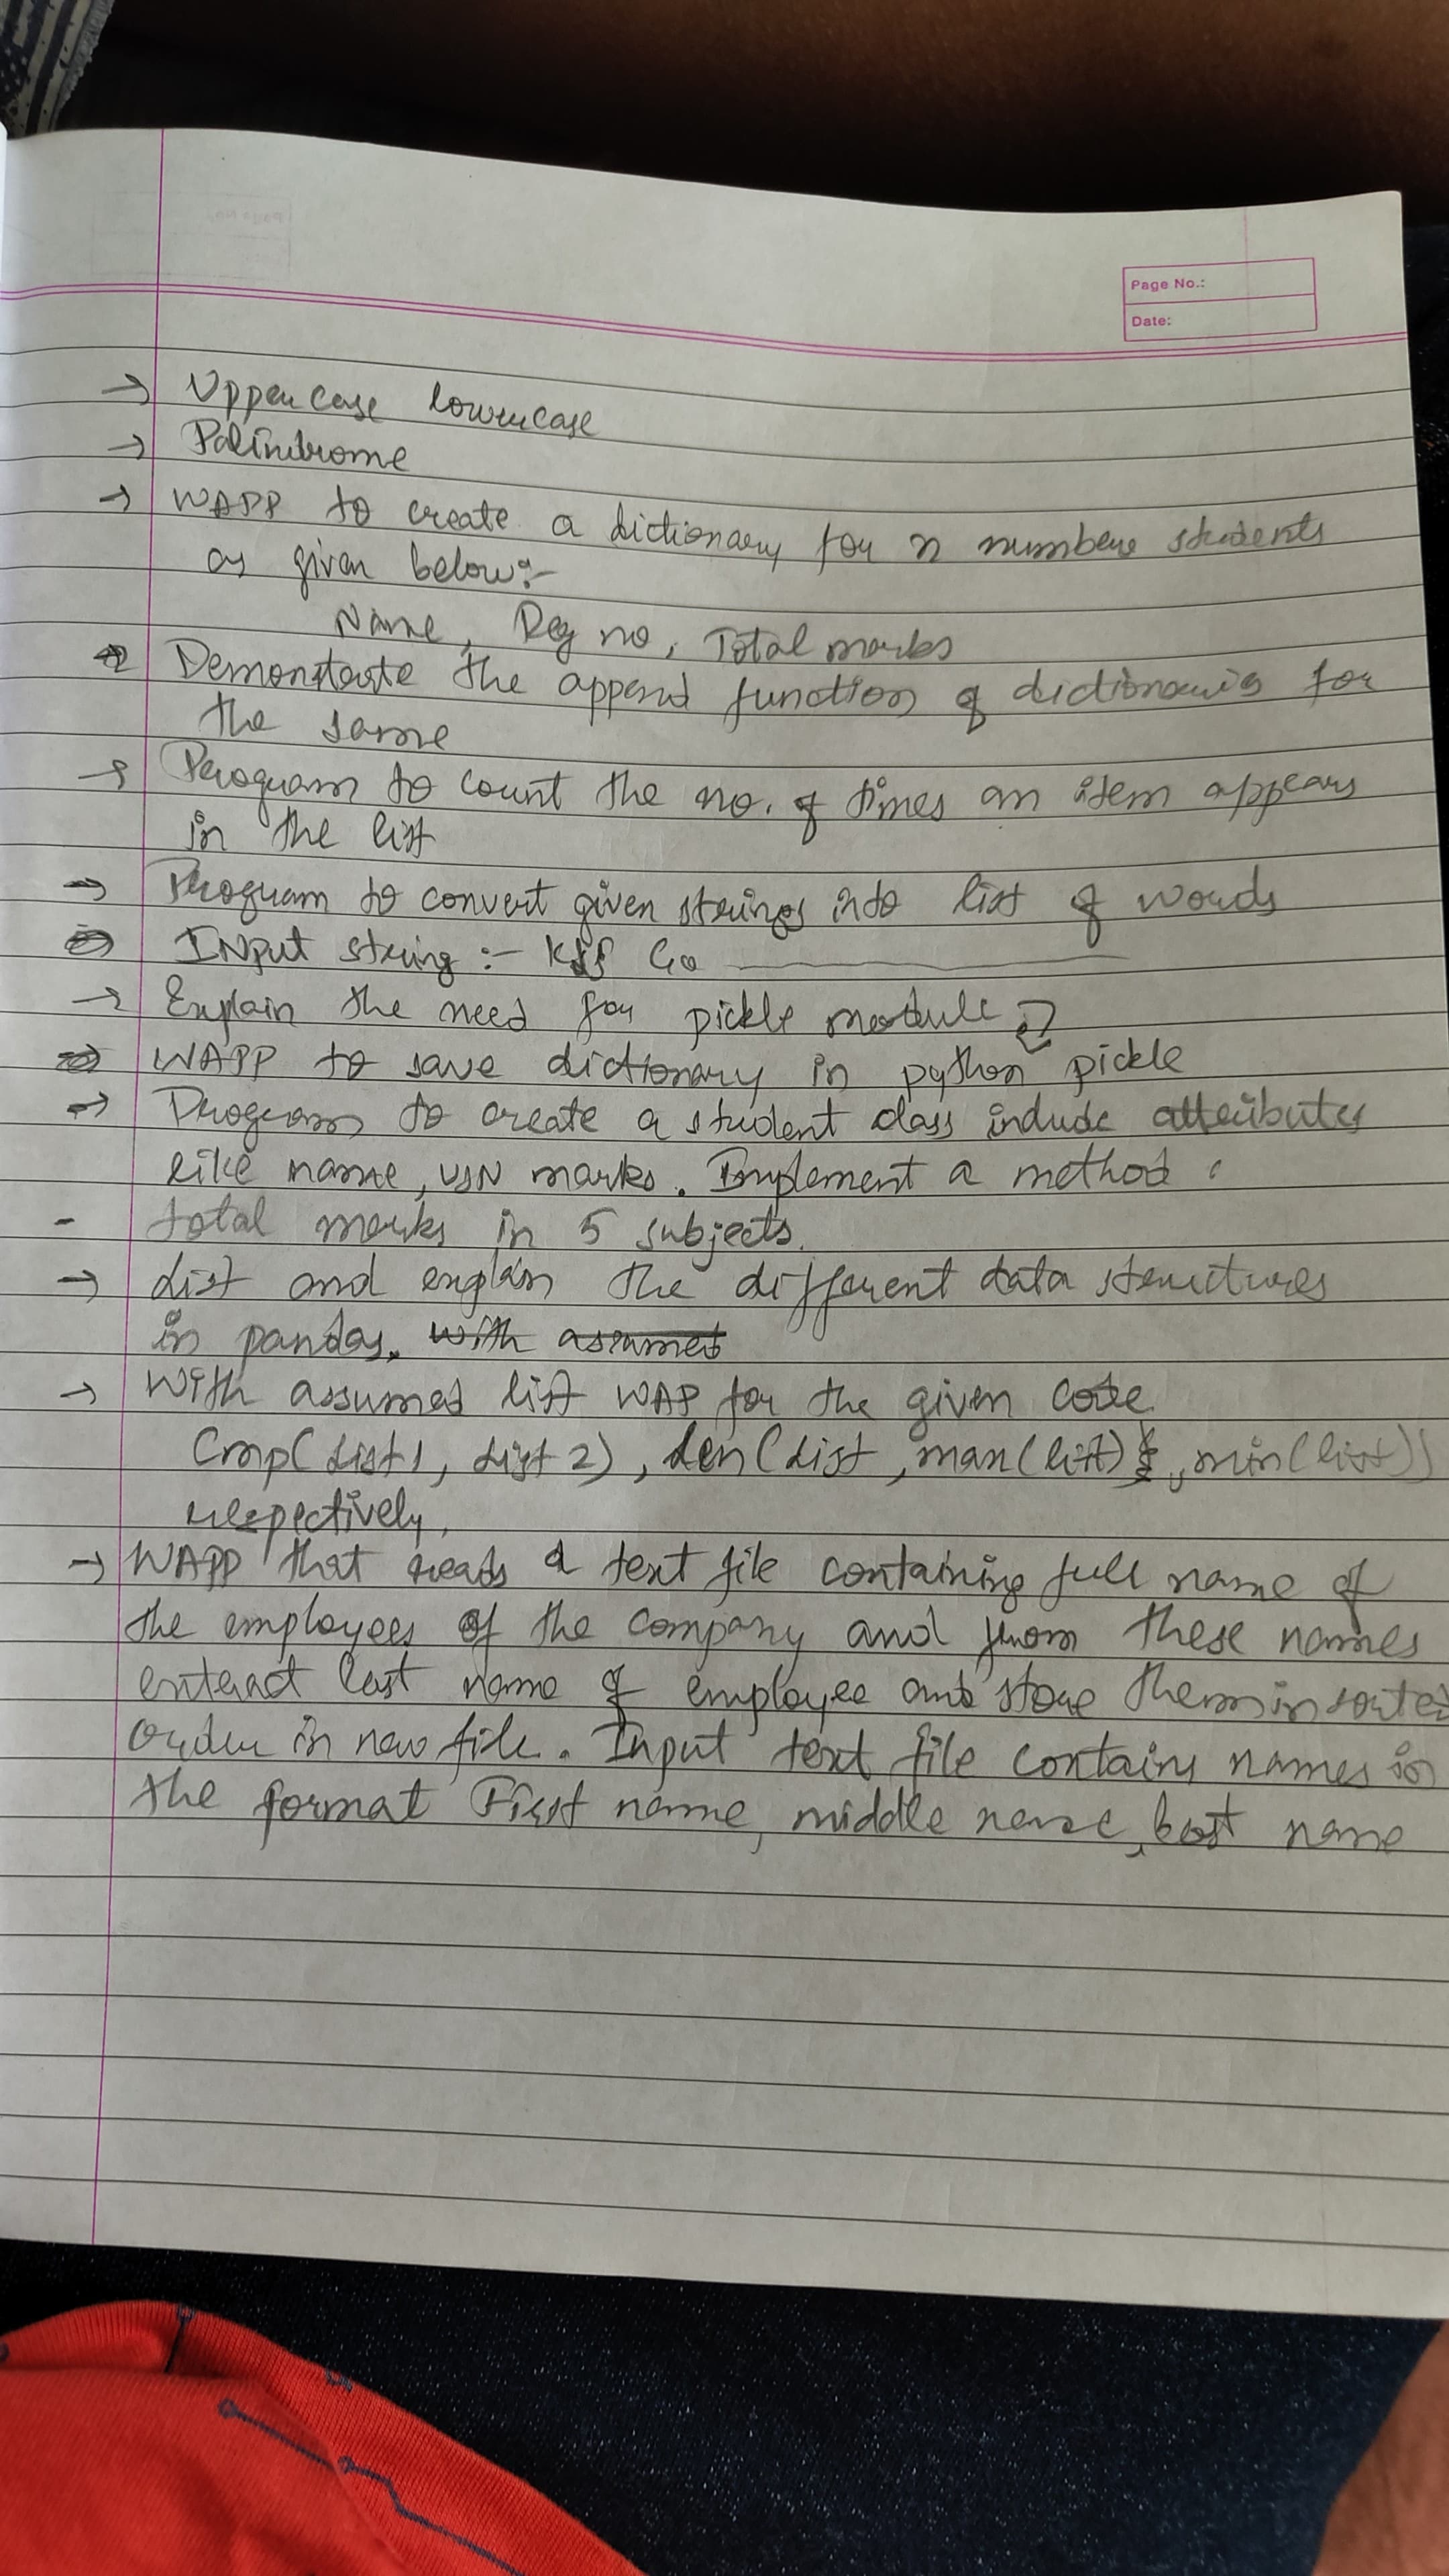 Page No.:
Date:
→ Uppercase lowercase
→ Palindrome
→ WAPP to create a dictionary for n numbers students
as given below:-
Name, Reg no, Total marks
Demonstrate the append function of dictionaries for
the same
→ Program to count the no. of times an item appears
in the list
→ Program to convert given strings into list of words
INput string :- Go
→ Explain the need for pickle module?
→ WAPP to save dictionary in python pickle
→ Program to create a student class include attributes
like name, USN marks. Implement a method
- total marks in 5 subjects.
→ List and explain the different data structures
in pandas. with assumed
→ With assumed list WAP for the given code
Cmp(List1, List2), Len(List, max(list), min(list))
respectively.
→ WAPP that reads a text file containing full name of
the employees of the company and from these names
extract last name of employee and store them in sorted
order in new file. Input text file contains names in
the format First name, middle name, last name